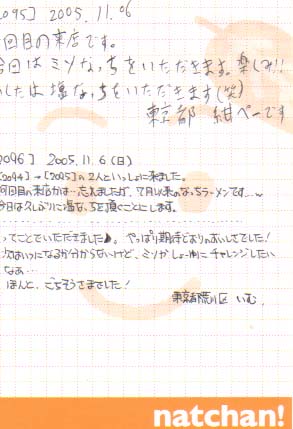 2095] 2005.11.06
回目の来店です。
今回はミソなっちをいただきます。楽しみ!!
したは塩なっちをいただきます(笑)
東京都 紺ペーです
2096] 2005.11.6(日)
[2094]→[2095]の2人といっしょに来ました。
何回目の来店かは…忘れましたが、7月以来のなっちラーメンです…。
今日は久しぶりに塩なっちを頂くことにします。
ってことでいただきました♪。やっぱり期待どおりのおいしさでした!
次はいつになるか分からないけど、ミソかしょーゆにチャレンジしたい
なあ…
ほんと、ごちそうさまでした!
東京都荒川区 いむ.
natchan!